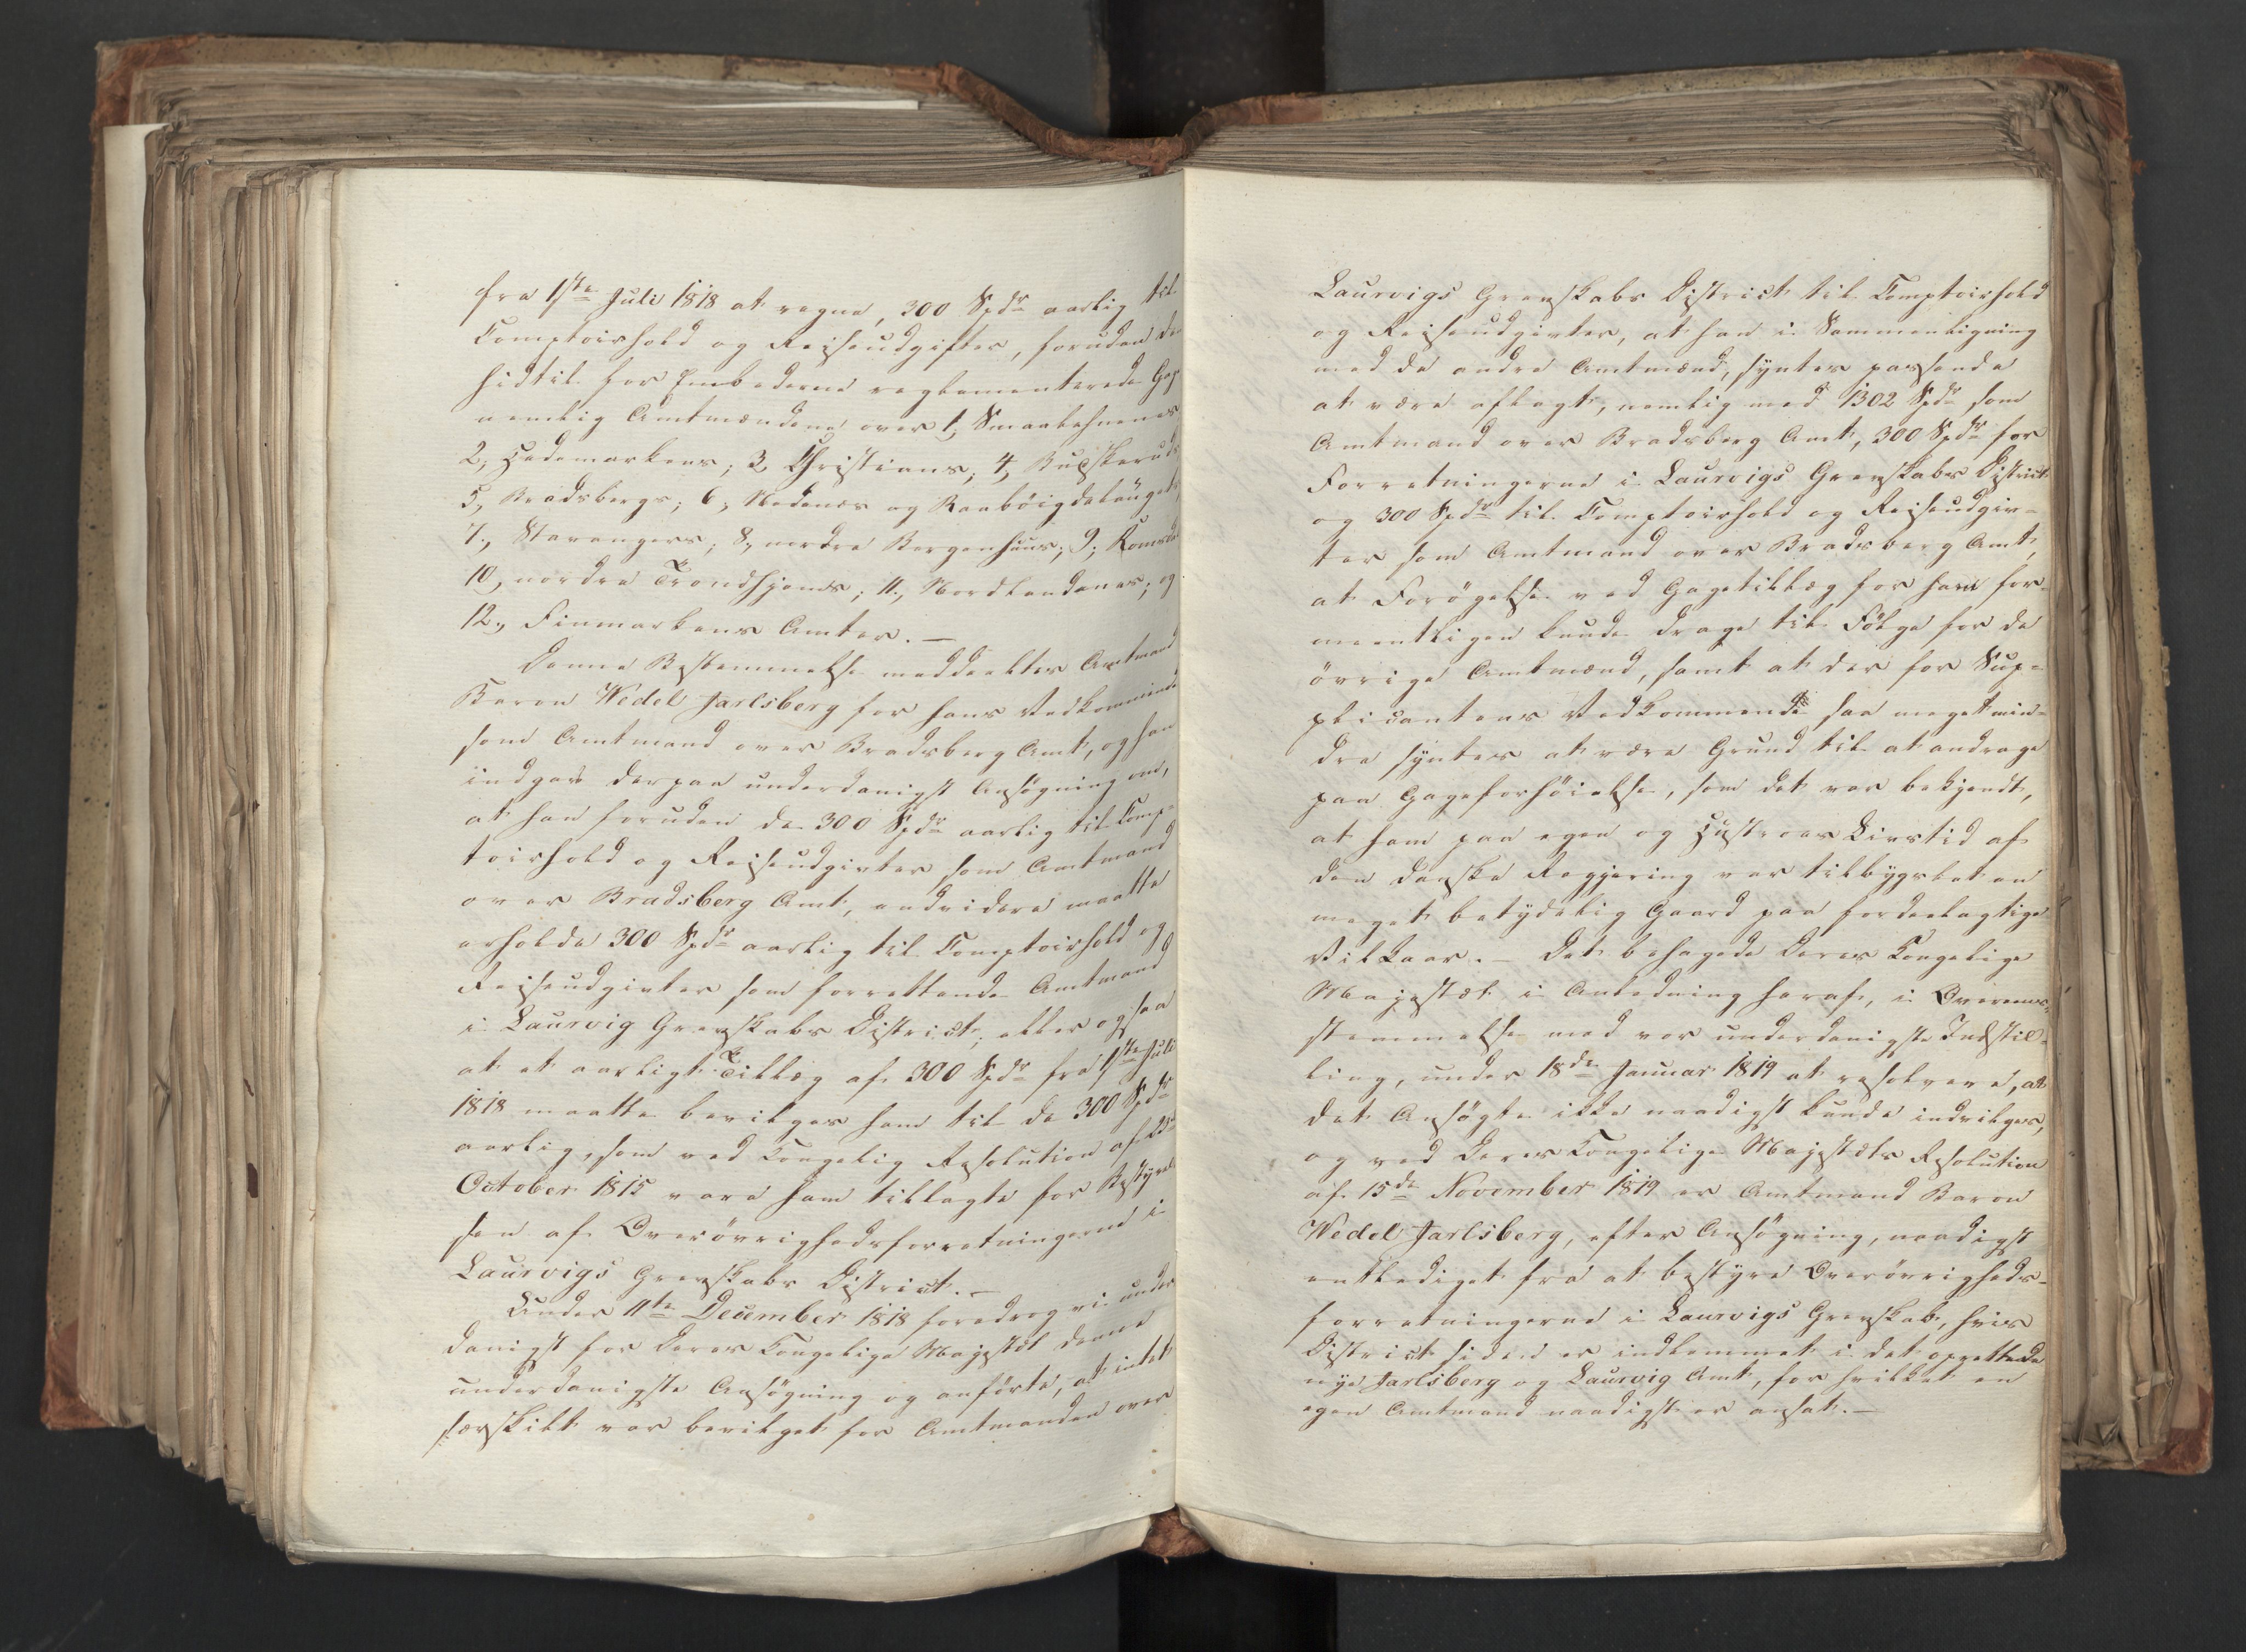 fra 1ste Juli 1818 at regne, 300 Spdr aarlig til
Comptoirhold og Reiseudgifter, foruden den
hidtil for Embederne reglementerede Gage
nemlig Amtmændene over 1, Smaalehnenes
2, Hedemarkens; 3, Christians; 4, Buskeruds
5, Bradsbergs; 6, Nedenes og Raabøigdelaugets
7., Stavangers; 8, nordre Bergenhuus; 9, Romsdal
10, nordre Trondhjems; 11., Nordlandenes; og
12., Finmarkens Amter. —
Denne Bestemmelse meddeeltes Amtmand
Baron Wedel Jarlsberg for hans Vedkommende
som Amtmand over Bradsberg Amt, og han
indgav derpaa underdanigst Ansøgning om,
at han foruden de 300 Spdr aarlig til Comp-
toirhold og Reiseudgivter som Amtmand
over Bradsberg Amt, endvidere maatte
erholde 300 Spdr aarlig til Comptoirhold og
Reiseudgivter som forrettende Amtmand
i Laurvig Grevskabs District; eller ogsaa
at et aarligt Tillæg af 300 Spdr fra 1ste Juli
1818 maatte bevilges ham til de 300 Spdr
aarlig, som ved Kongelig Resolution af
October 1815 vare ham tillagte for Bestyrel-
sen af Overøvrighedsforretningerne i
Laurvigs Grevskabs District. —
Under 11te December 1818 foredrog vi under-
danigst for Deres Kongelige Majestæt denne
underdanigste Ansøgning og anførte, at intet
særskilt var bevilget for Amtmanden over
Laurvigs Grevskabs District til Comptoirhold
og Reiseudgivter, at han i Sammenligning
med de andre Amtmænd, syntes passende
at være aflagt, nemlig med 1302 Spdr som
Amtmand over Bradsberg Amt, 300 Spdr for
Forretningerne i Laurvigs Grevskabs District
og 300 Spdr til Comptoirhold og Reiseudgiv-
ter som Amtmand over Bradsberg Amt,
at Forøgelse ved Gagetillæg for ham for-
meentligen kunde drage til Følge for de
øvrige Amtmænd, samt at der for Sup-
plicantens Vedkommende saa meget min-
dre syntes at være Grund til at andrage
paa Gageforhøielse, som det var bekjendt,
at ham paa egen og Hustroes Livstid af
den danske Regjering var tilbygslet en
meget betydelig Gaard paa fordeelagtige
Vilkaar. — Det behagede Deres Kongelige
Majestæt i Anledning heraf, i Overeens-
stemmelse med vor underdanigste Indstil-
ling, under 18de Januar 1819 at resolvere, at
det Ansøgte ikke naadigst kunde indvilges,
og ved Deres Kongelige Majestæts Resolution
af 15de November 1819 er Amtmand Baron
Wedel Jarlsberg, efter Ansøgning, naadigst
entlediget fra at bestyre Overøvrigheds-
forretningerne i Laurvigs Grevskab, hvis
District siden er indlemmet i det oprettede
nye Jarlsberg og Laurvig Amt, for hvilket en
egen Amtmand naadigst er ansat. —